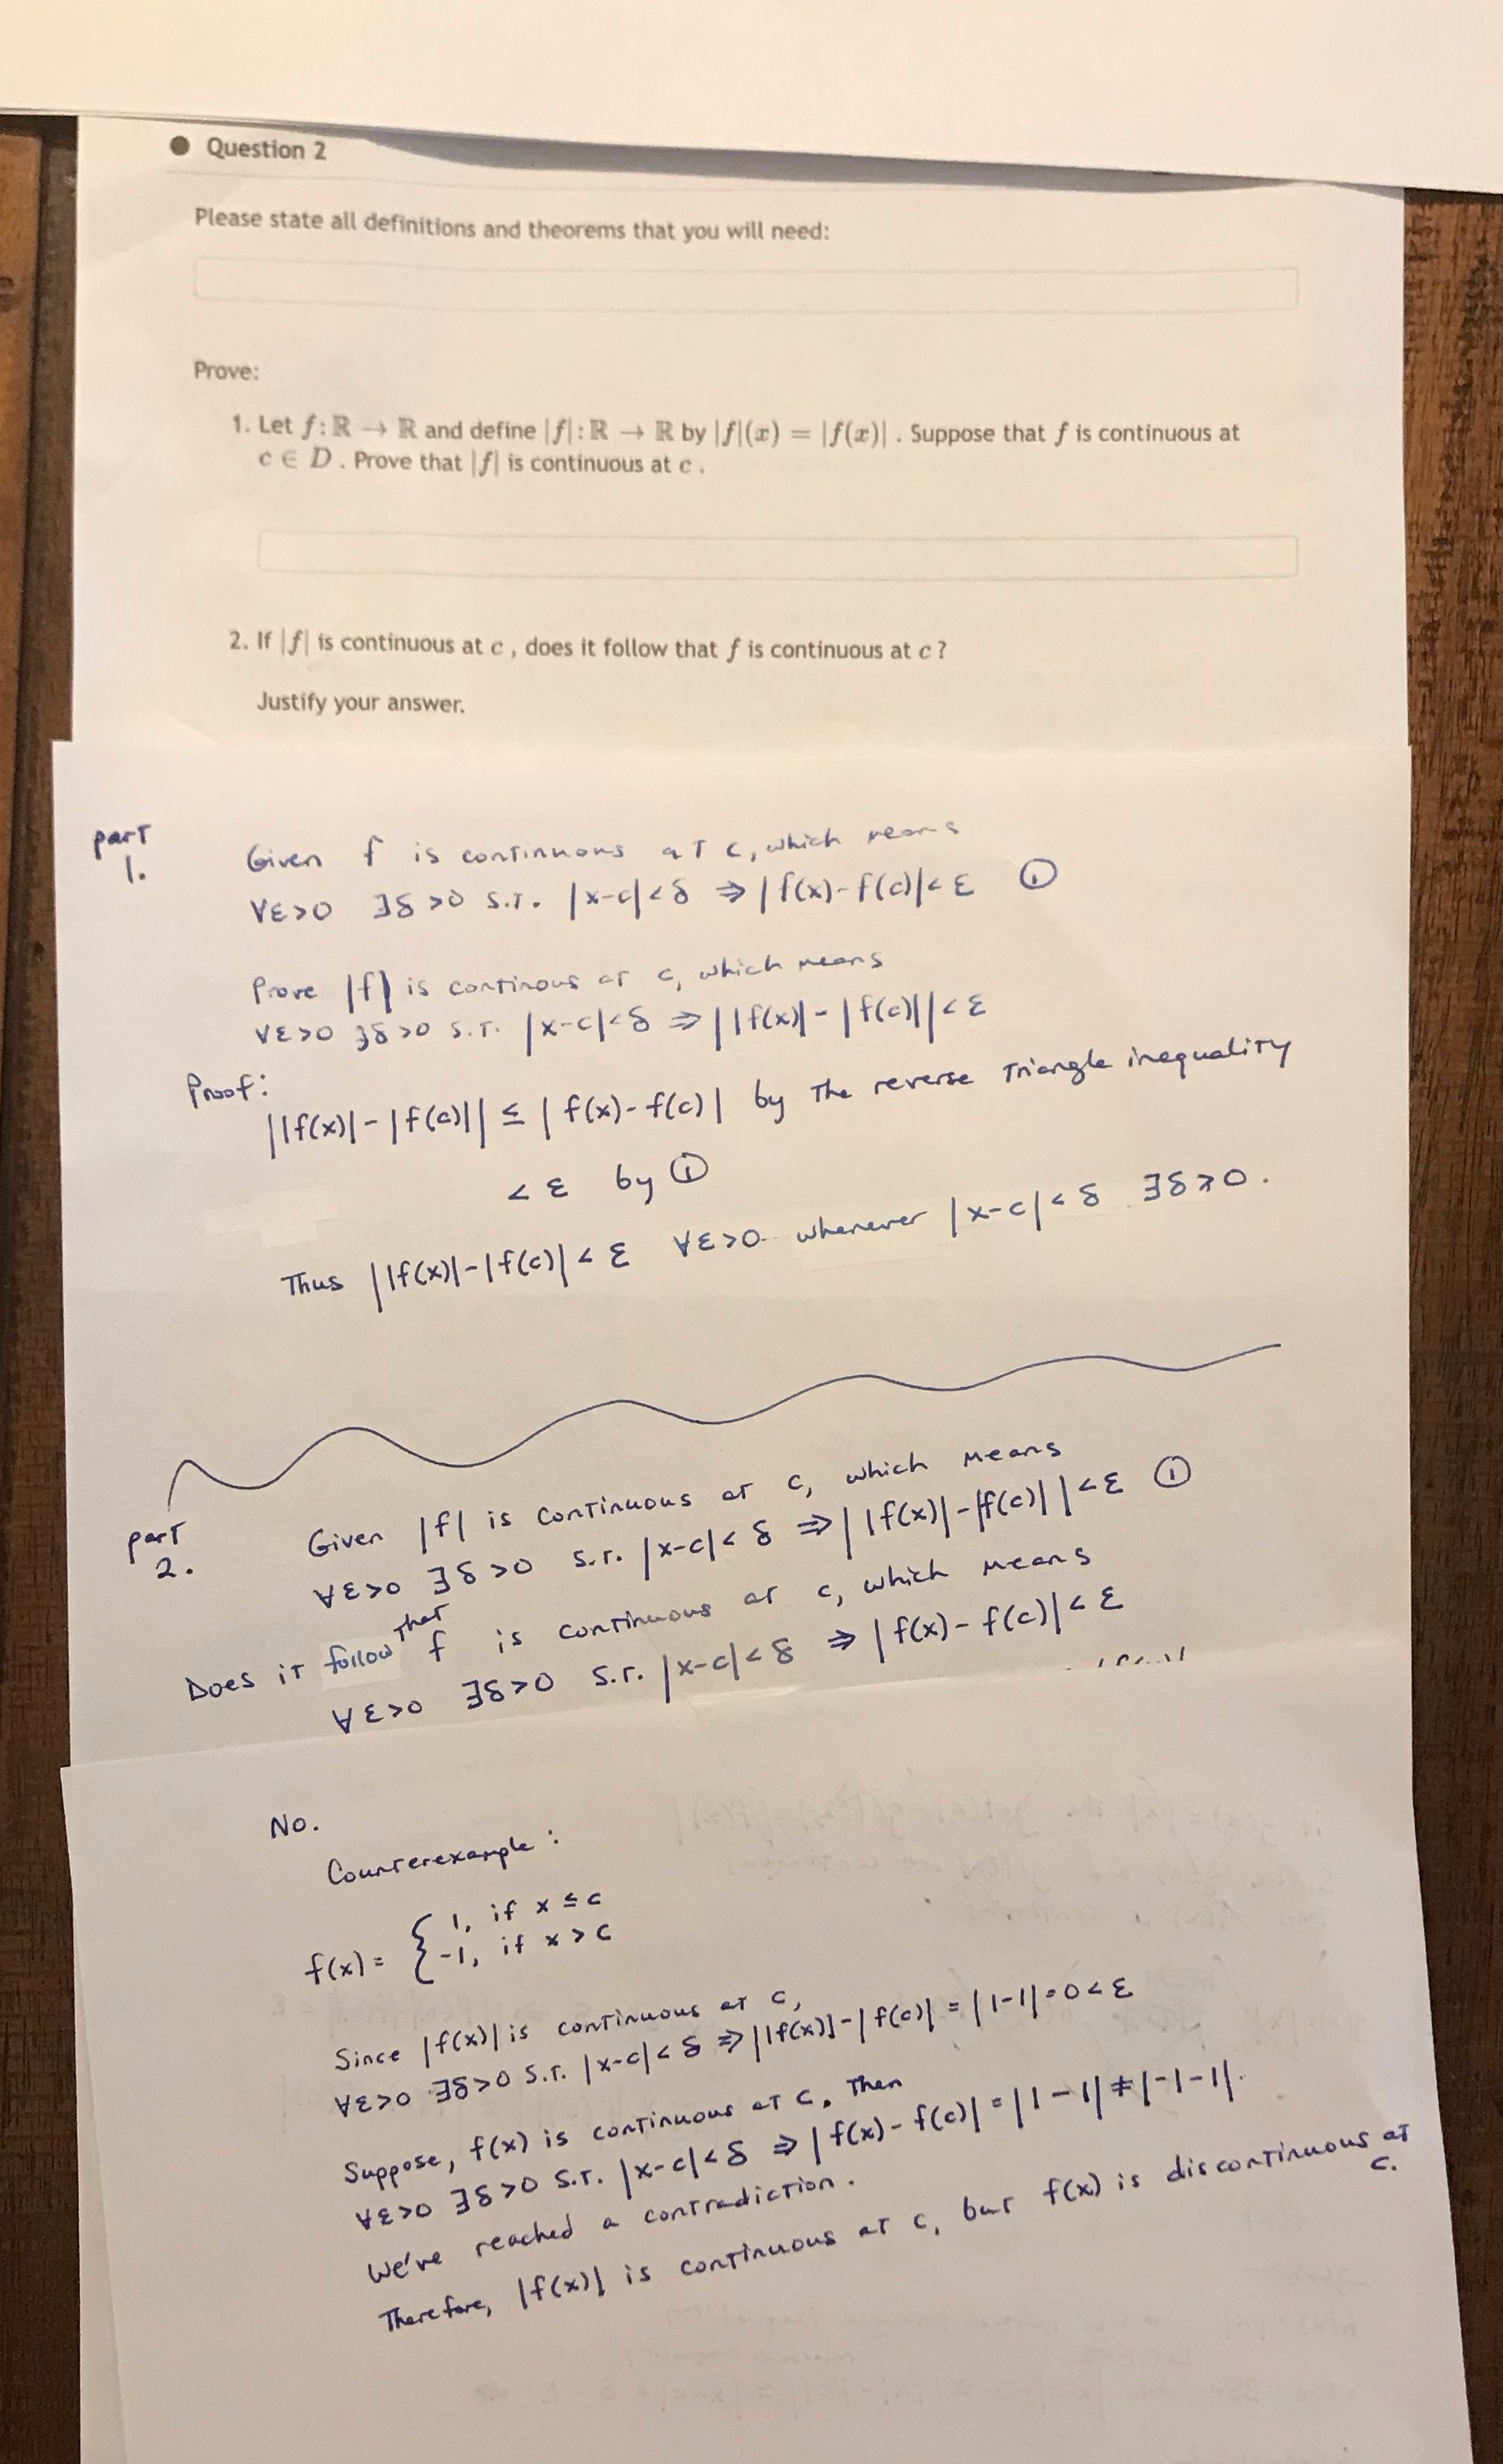 Question 2
Please state all definitions and theorems that you will need:
Prove:
1. Let f: ℝ → ℝ and define |f|: ℝ → ℝ by |f|(x) = |f(x)| . Suppose that f is continuous at
c ∈ D . Prove that |f| is continuous at c .
2. If |f| is continuous at c , does it follow that f is continuous at c ?
Justify your answer.
part
1.
Given f is continuous at c, which means
∀ε>0 ∃δ>0 s.t. |x-c|<δ ⇒ |f(x)-f(c)|<ε ①
Prove |f| is continous at c, which means
∀ε>0 ∃δ>0 s.t. |x-c|<δ ⇒ ||f(x)|-|f(c)||<ε
Proof:
||f(x)|-|f(c)|| ≤ |f(x)-f(c)| by the reverse triangle inequality
< ε by ①
Thus ||f(x)|-|f(c)|| < ε ∀ε>0 whenever |x-c|<δ ∃δ>0.
part
2.
Given |f| is continuous at c, which means
∀ε>0 ∃δ>0 s.t. |x-c|<δ ⇒ ||f(x)|-|f(c)||<ε ①
Does it follow that f is continuous at c, which means
∀ε>0 ∃δ>0 s.t. |x-c|<δ ⇒ |f(x)-f(c)|<ε
No.
Counterexample:
f(x)= { 1, if x ≤ c
-1, if x > c
Since |f(x)| is continuous at c,
∀ε>0 ∃δ>0 s.t. |x-c|<δ ⇒ ||f(x)|-|f(c)| = |1-1|=0<ε
Suppose, f(x) is continuous at c, Then
∀ε>0 ∃δ>0 s.t. |x-c|<δ ⇒ |f(x)-f(c)|=|1-1|≠|-1-1|.
We've reached a contradiction.
Therefore, |f(x)| is continuous at c, but f(x) is discontinuous at
c.